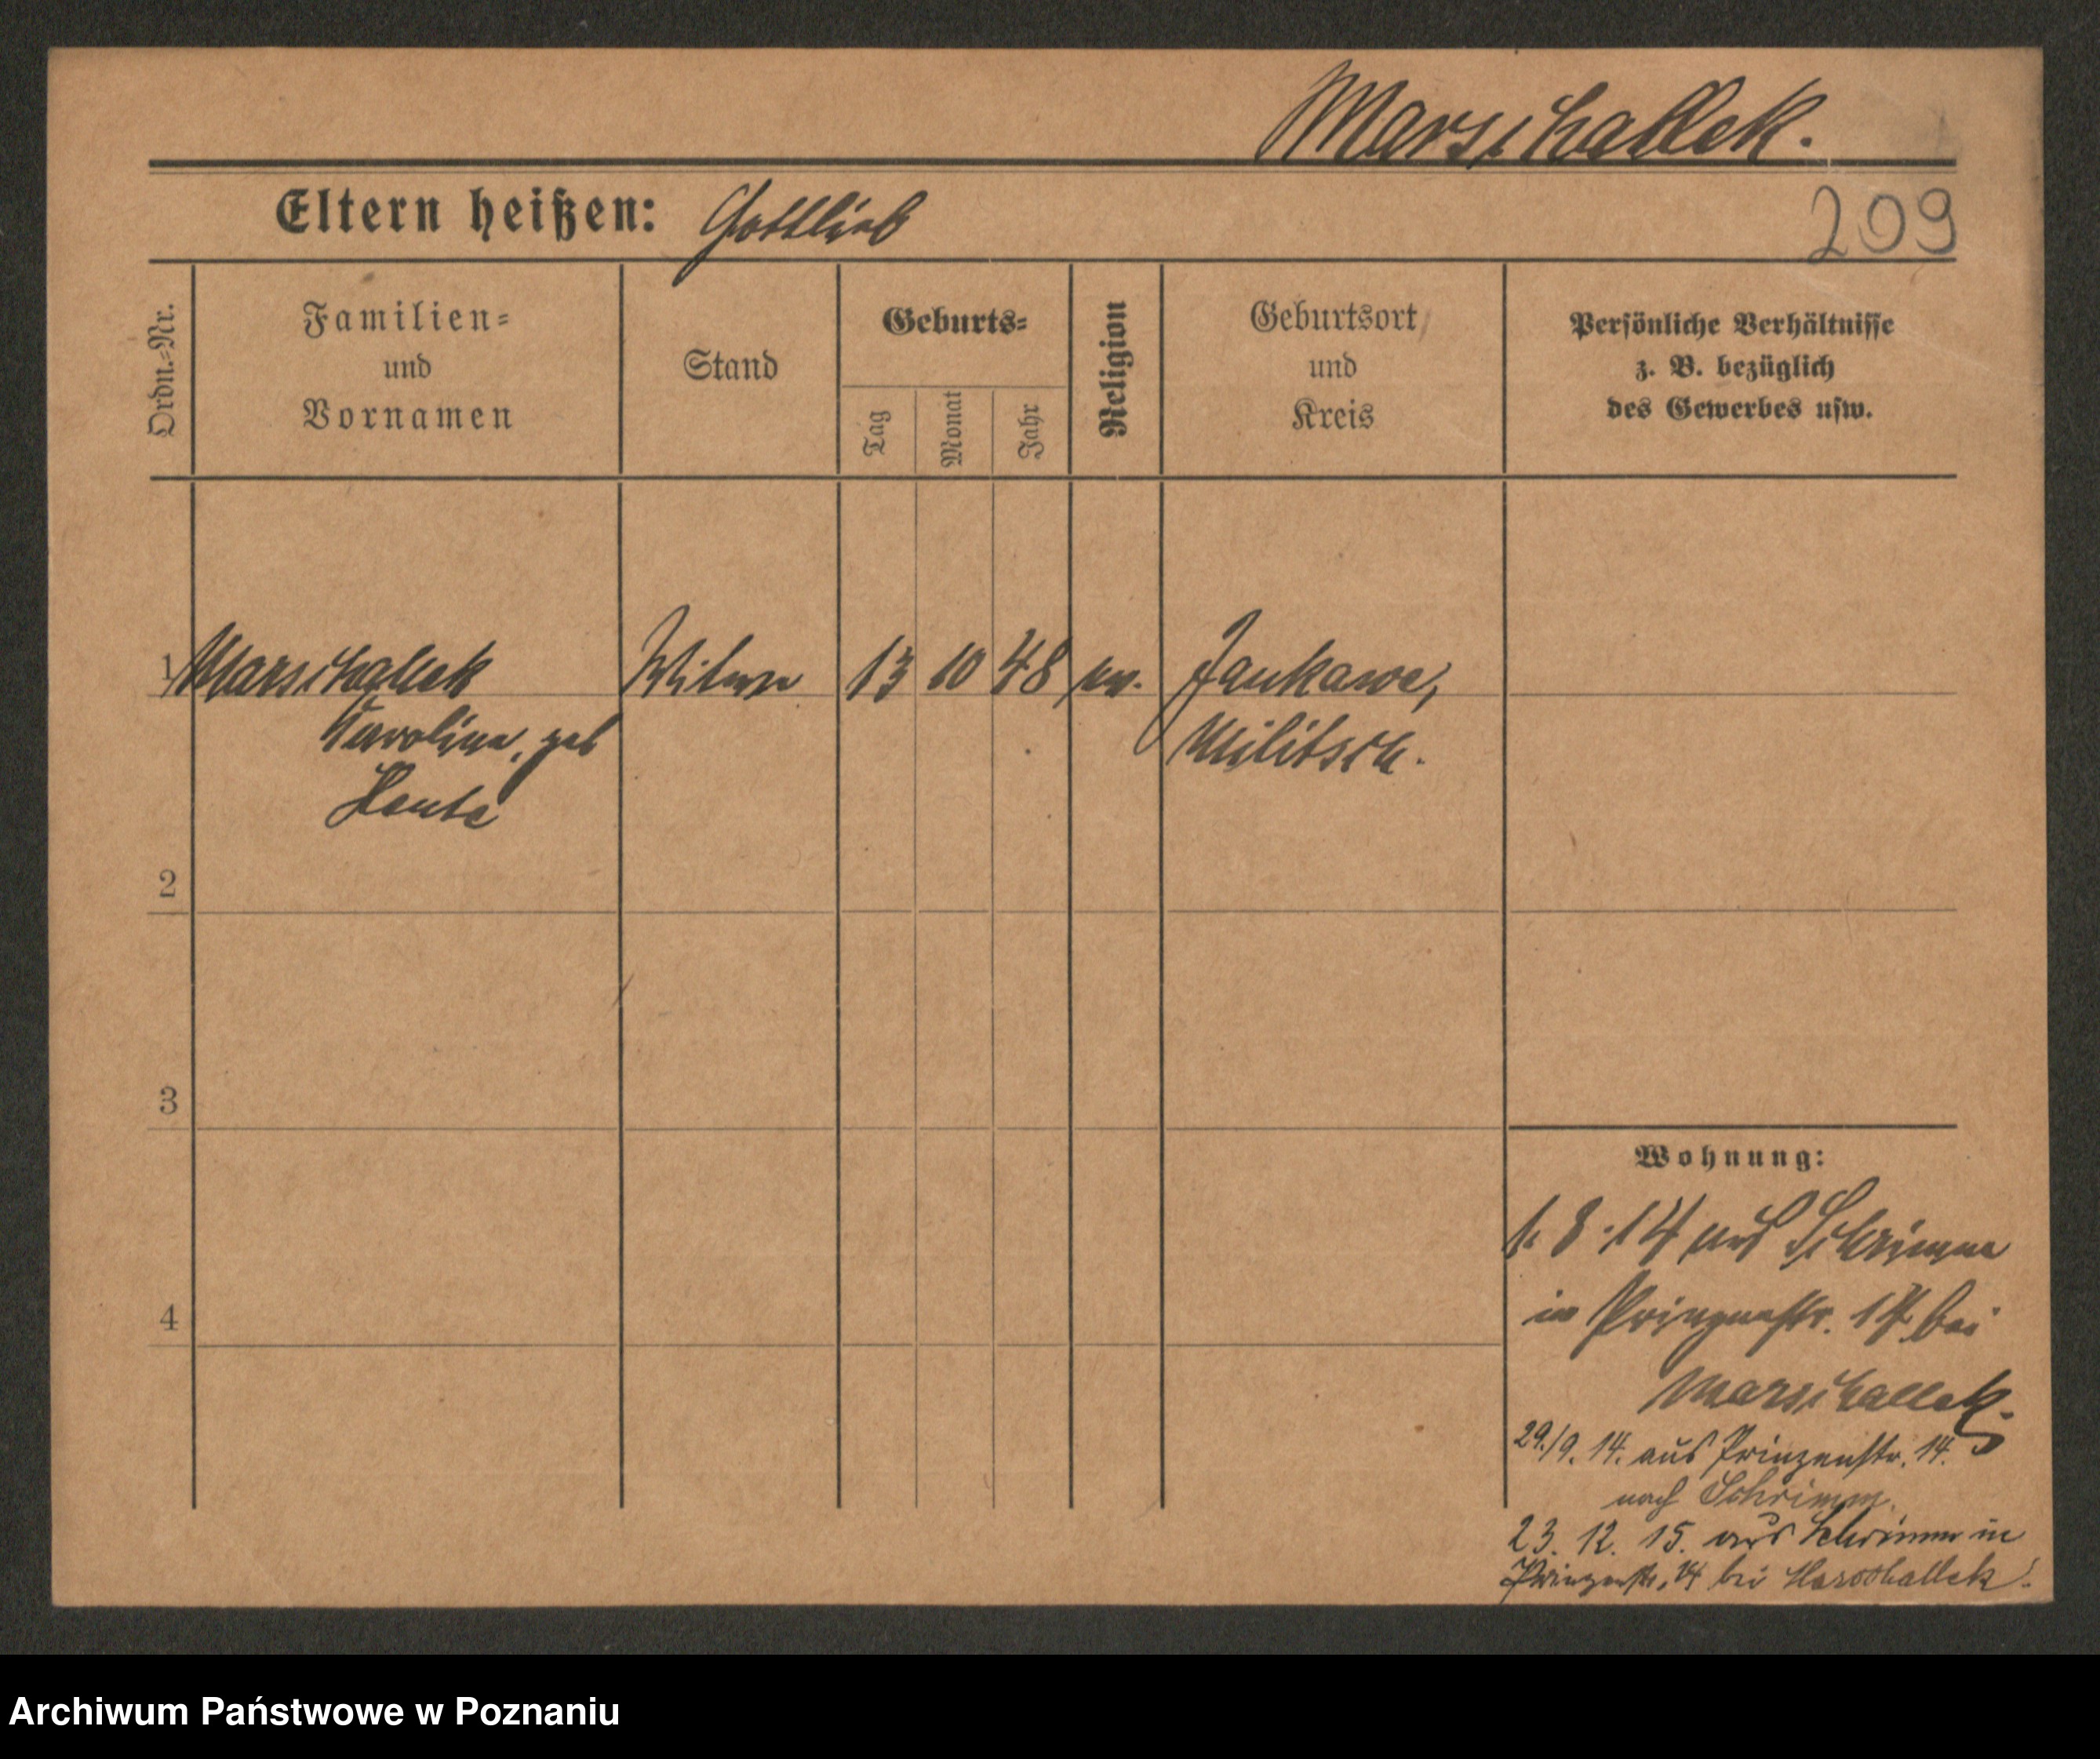 Marschallek.
Eltern heißen: Gottlieb
209
Ordn.-Nr.
Familien-
und
Vornamen
Stand
Geburts-
Tag
Monat
Jahr
Religion
Geburtsort
und
Kreis
Persönliche Verhältnisse
z. B. bezüglich
des Gewerbes usw.
1 Marschallek Witwe 13 10 48 ev. Jankawe,
Karoline, geb Militsch.
2
3
4
Wohnung:
1. 8. 14 aus Schrimm
in Prinzenstr. 14 bei
Marschallek.
29./9. 14. aus Prinzenstr. 14.
nach Schrimm.
23. 12. 15. aus Schrimm in
Prinzenstr. 14 bei Marschallek.
Archiwum Państwowe w Poznaniu